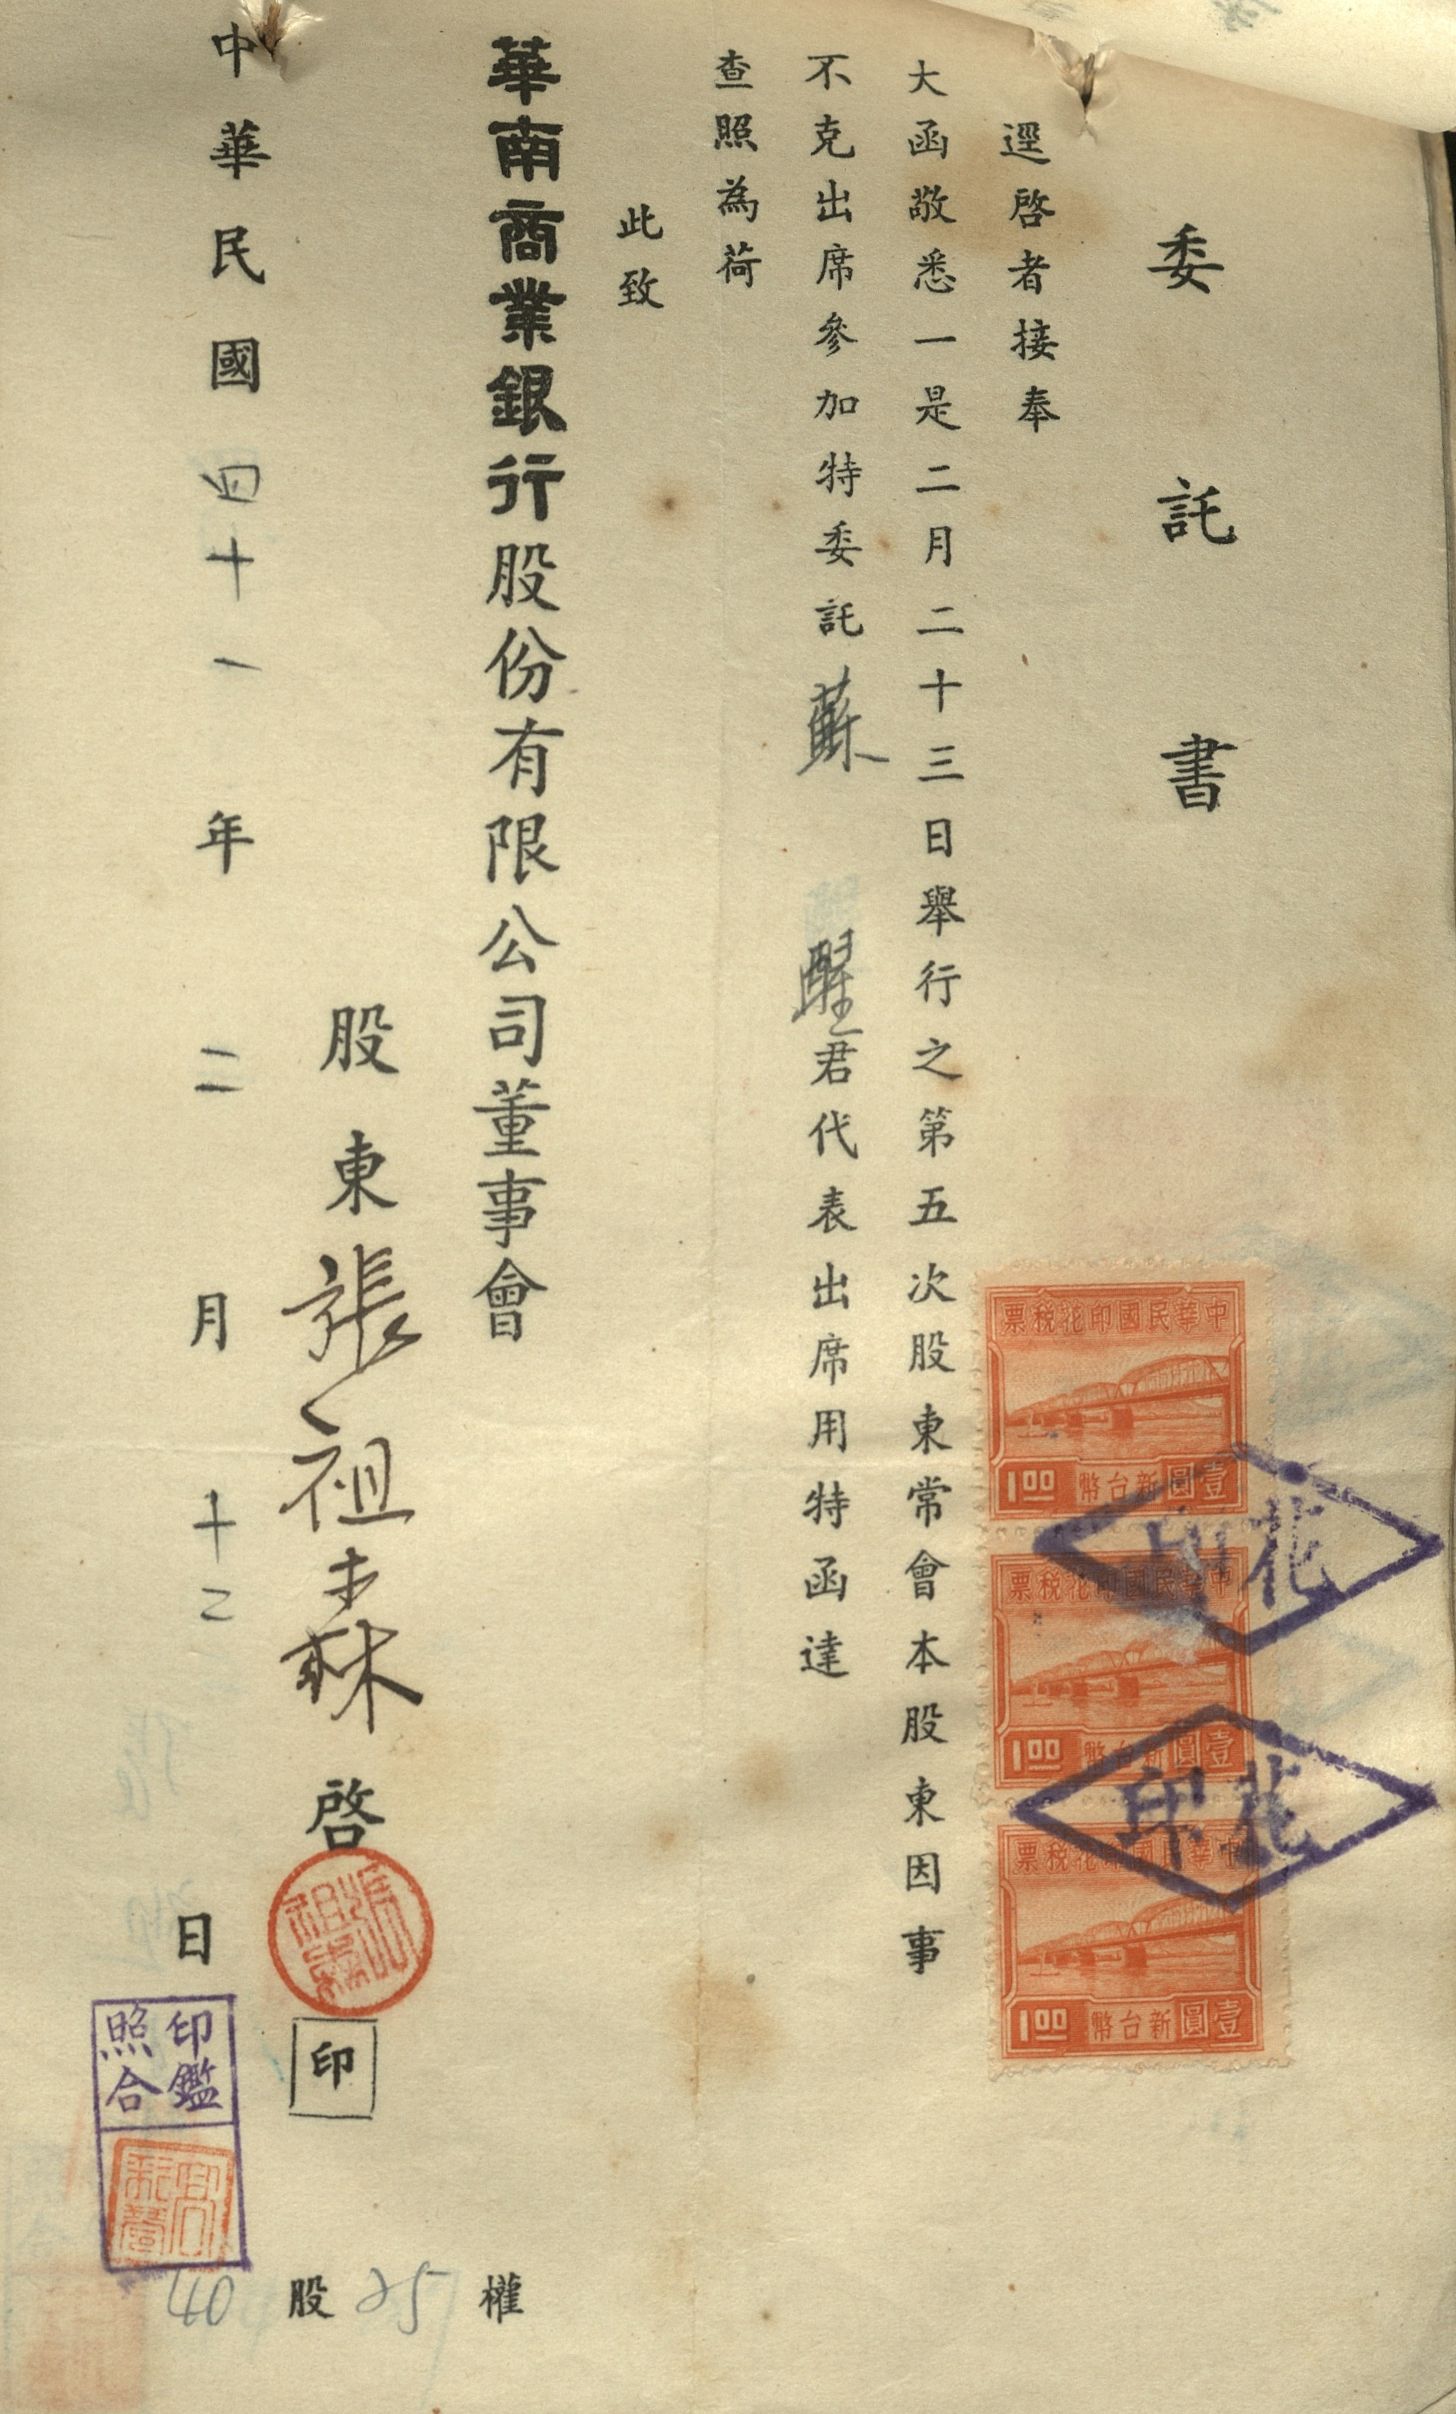 委託書
逕啓者接奉
大函敬悉一是二月二十三日舉行之第五次股東常會本股東因事
不克出席參加特委託蘇醒君代表出席用特函達
查照為荷
此致
華南商業銀行股份有限公司董事會
股東張祖啓
印
中華民國四十一年二月十二日
印鑑
照合
40股25權
中華民國印花稅票
壹圓新台幣 1.00
中華民國印花稅票
壹圓新台幣 1.00
中華民國印花稅票
壹圓新台幣 1.00
印花
印花